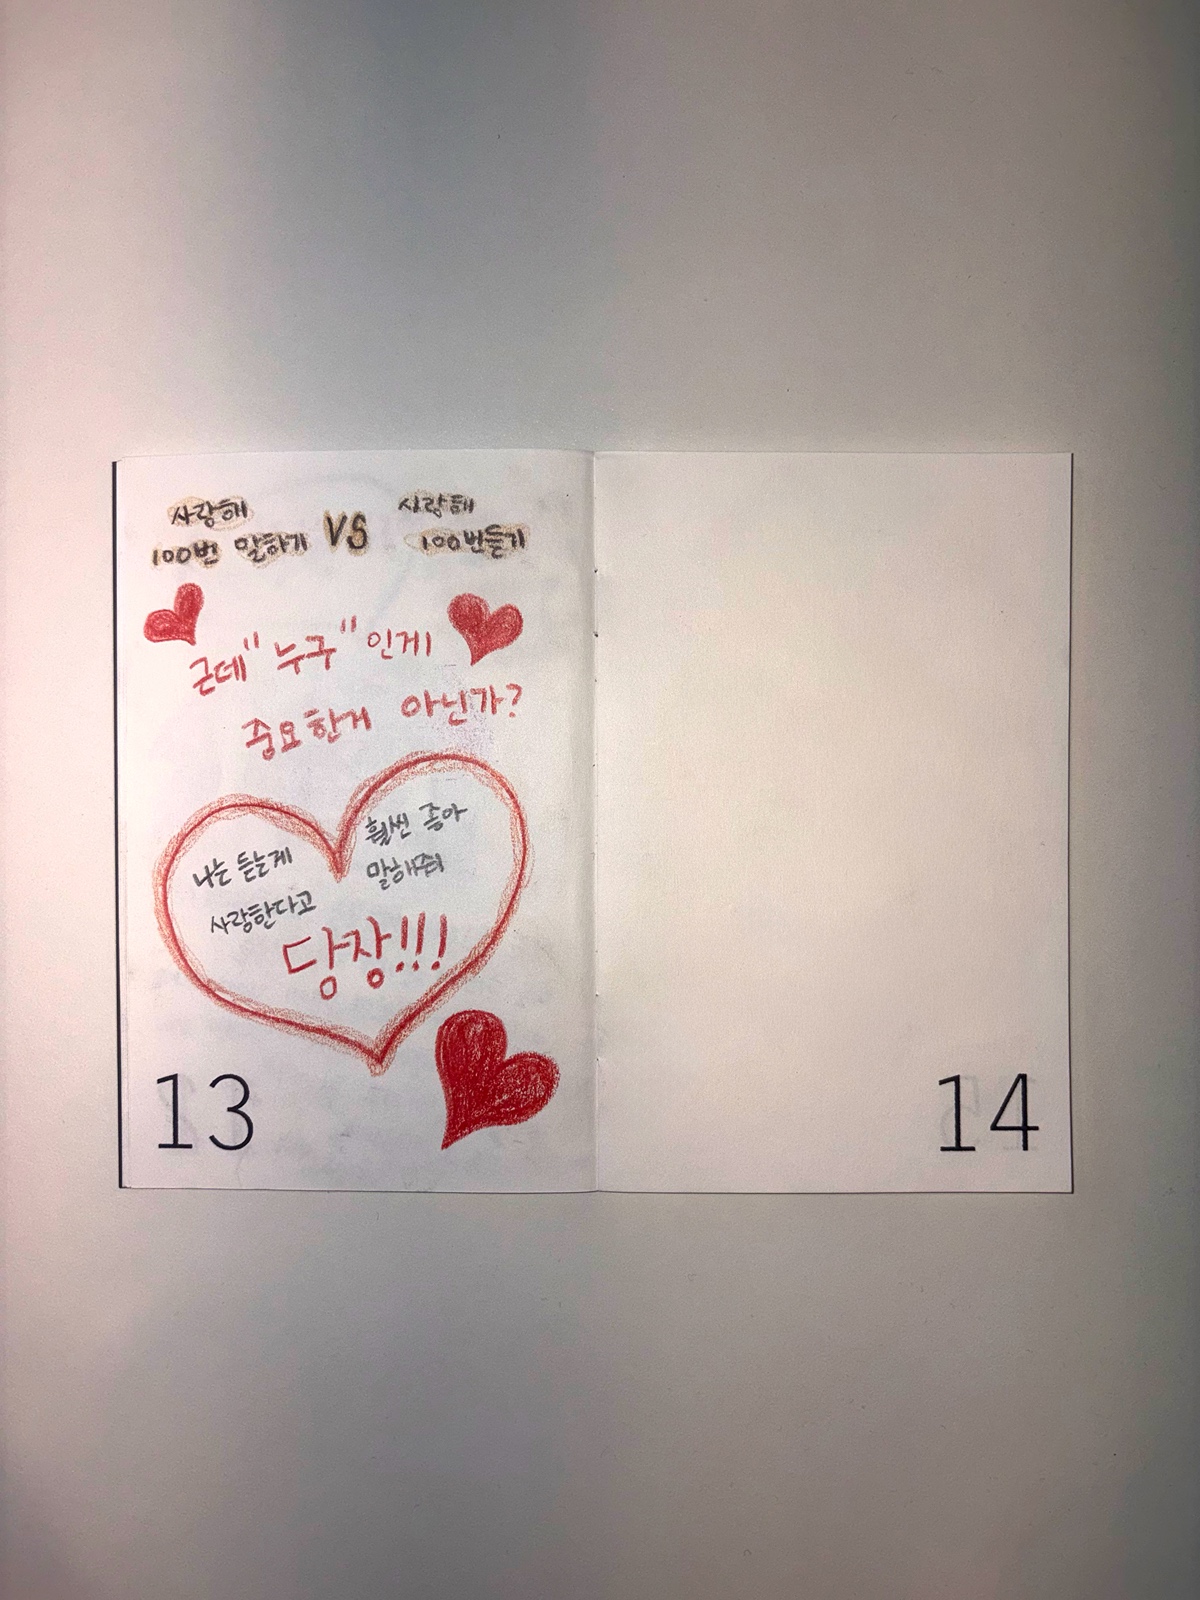 사랑해
100번 말하기
VS
사랑해
100번듣기
근데 "누구"인게
중요한거 아닌가?
나는 듣는게 훨씬 좋아
사랑한다고 말해줘
당장!!!
13
14